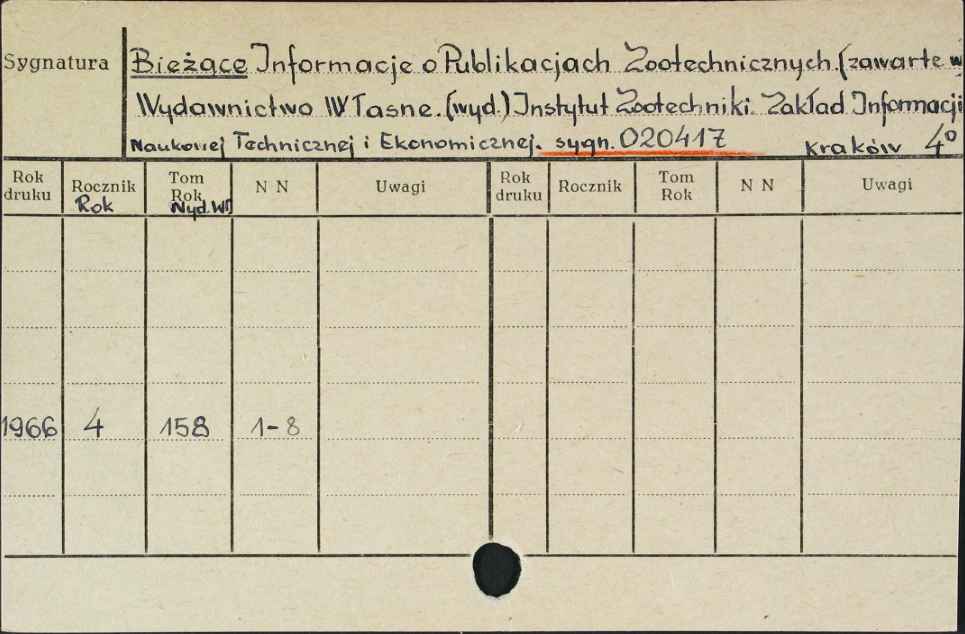 Sygnatura Bieżące Informacje o Publikacjach Zootechnicznych. (zawarte w
Wydawnictwo Własne. (wyd.) Instytut Zootechniki. Zakład Informacji
Naukowej Technicznej i Ekonomicznej. sygn. 020417 Kraków 4º
Rok druku Rocznik Rok Tom Rok Wyd. Wł N N Uwagi Rok druku Rocznik Tom Rok N N Uwagi
1966 4 158 1-8